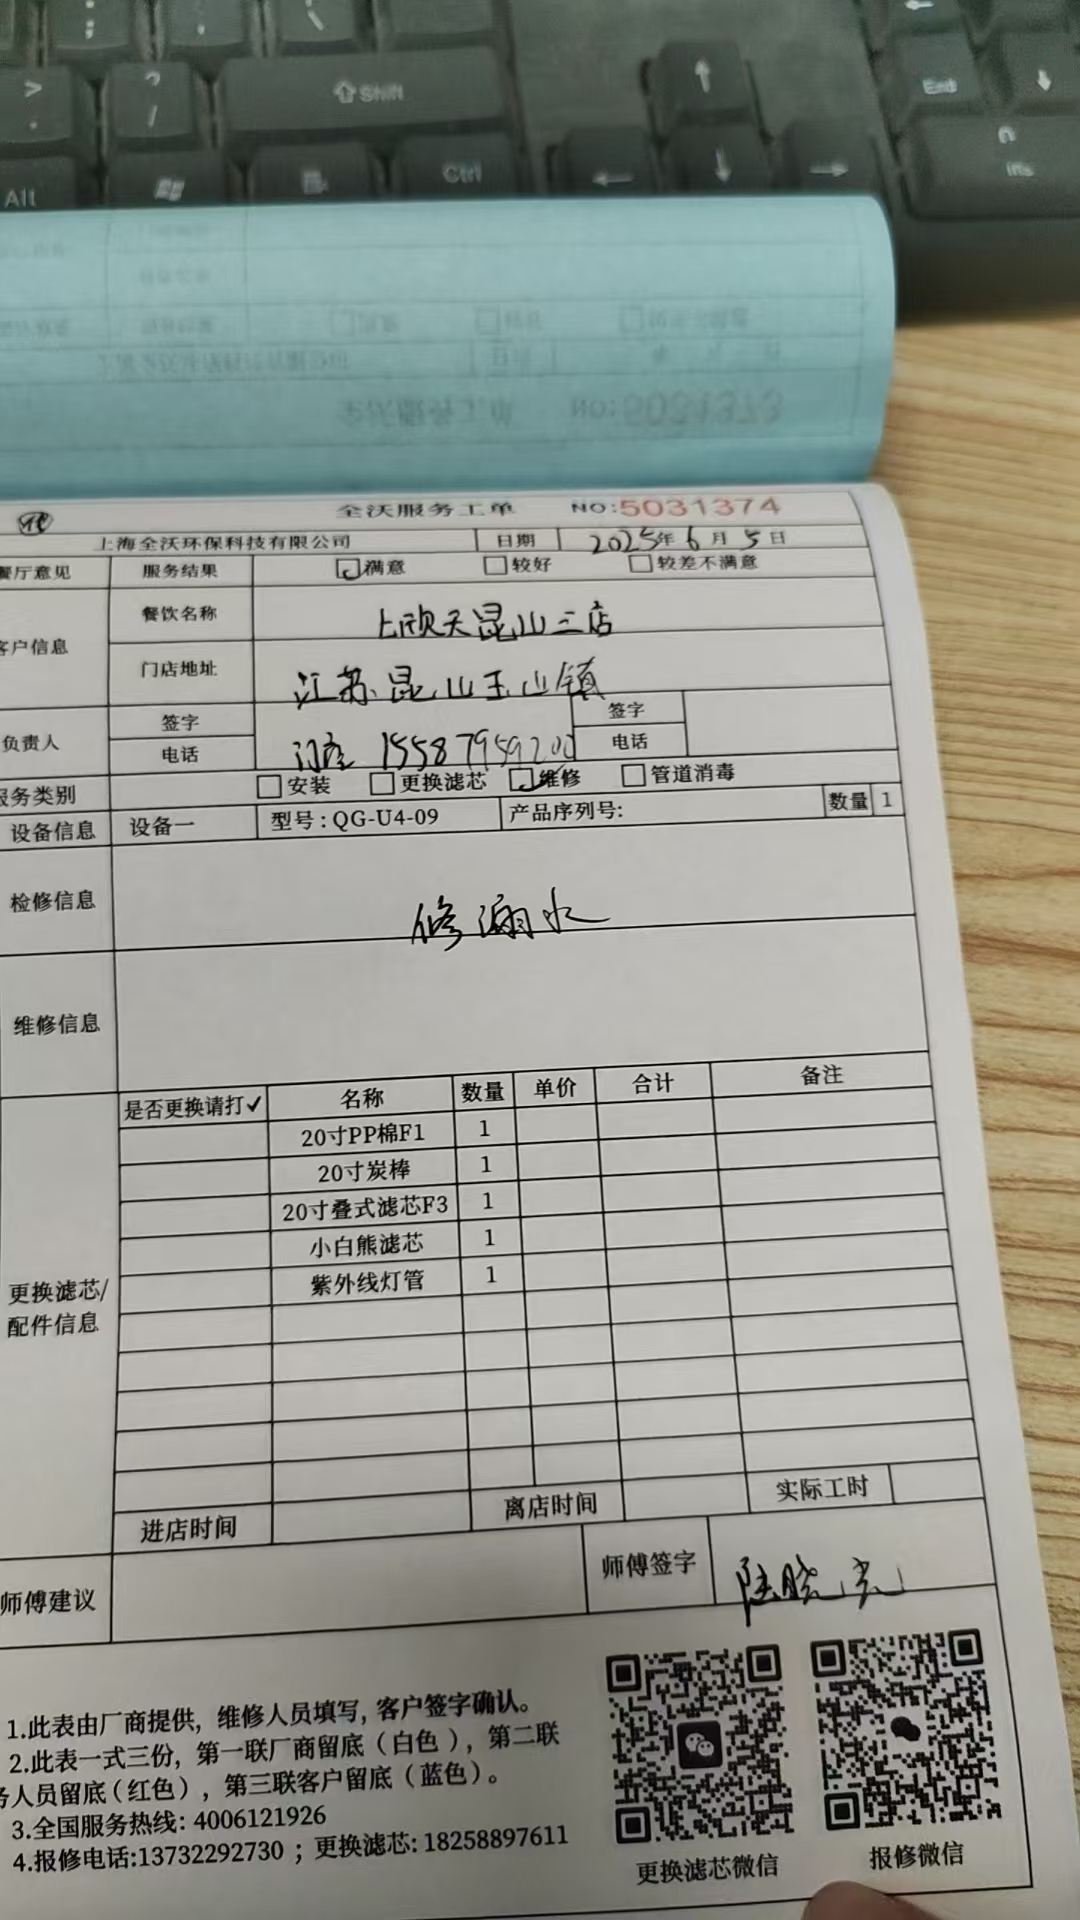 > ?
. / Shift ↑ End ↓
Alt Ctrl ← ↓ → Ins
全沃服务工单 NO:5031373
全沃服务工单 NO:5031374
上海全沃环保科技有限公司 日期 2025年6月5日
餐厅意见 服务结果 满意 较好 较差不满意
客户信息 餐饮名称 上欣天昆山三店
门店地址 江苏昆山玉山镇
负责人 签字 签字
电话 门店 15587959200 电话
服务类别 安装 更换滤芯 维修 管道消毒
设备信息 设备一 型号:QG-U4-09 产品序列号: 数量 1
检修信息 修漏水
维修信息
是否更换请打✓ 名称 数量 单价 合计 备注
20寸PP棉F1 1
20寸炭棒 1
20寸叠式滤芯F3 1
小白熊滤芯 1
紫外线灯管 1
更换滤芯/
配件信息
进店时间 离店时间 实际工时
师傅建议 师傅签字 陆晓光
1.此表由厂商提供，维修人员填写，客户签字确认。
2.此表一式三份，第一联厂商留底（白色），第二联
务人员留底（红色），第三联客户留底（蓝色）。
3.全国服务热线: 4006121926
4.报修电话:13732292730 ；更换滤芯: 18258897611
更换滤芯微信 报修微信